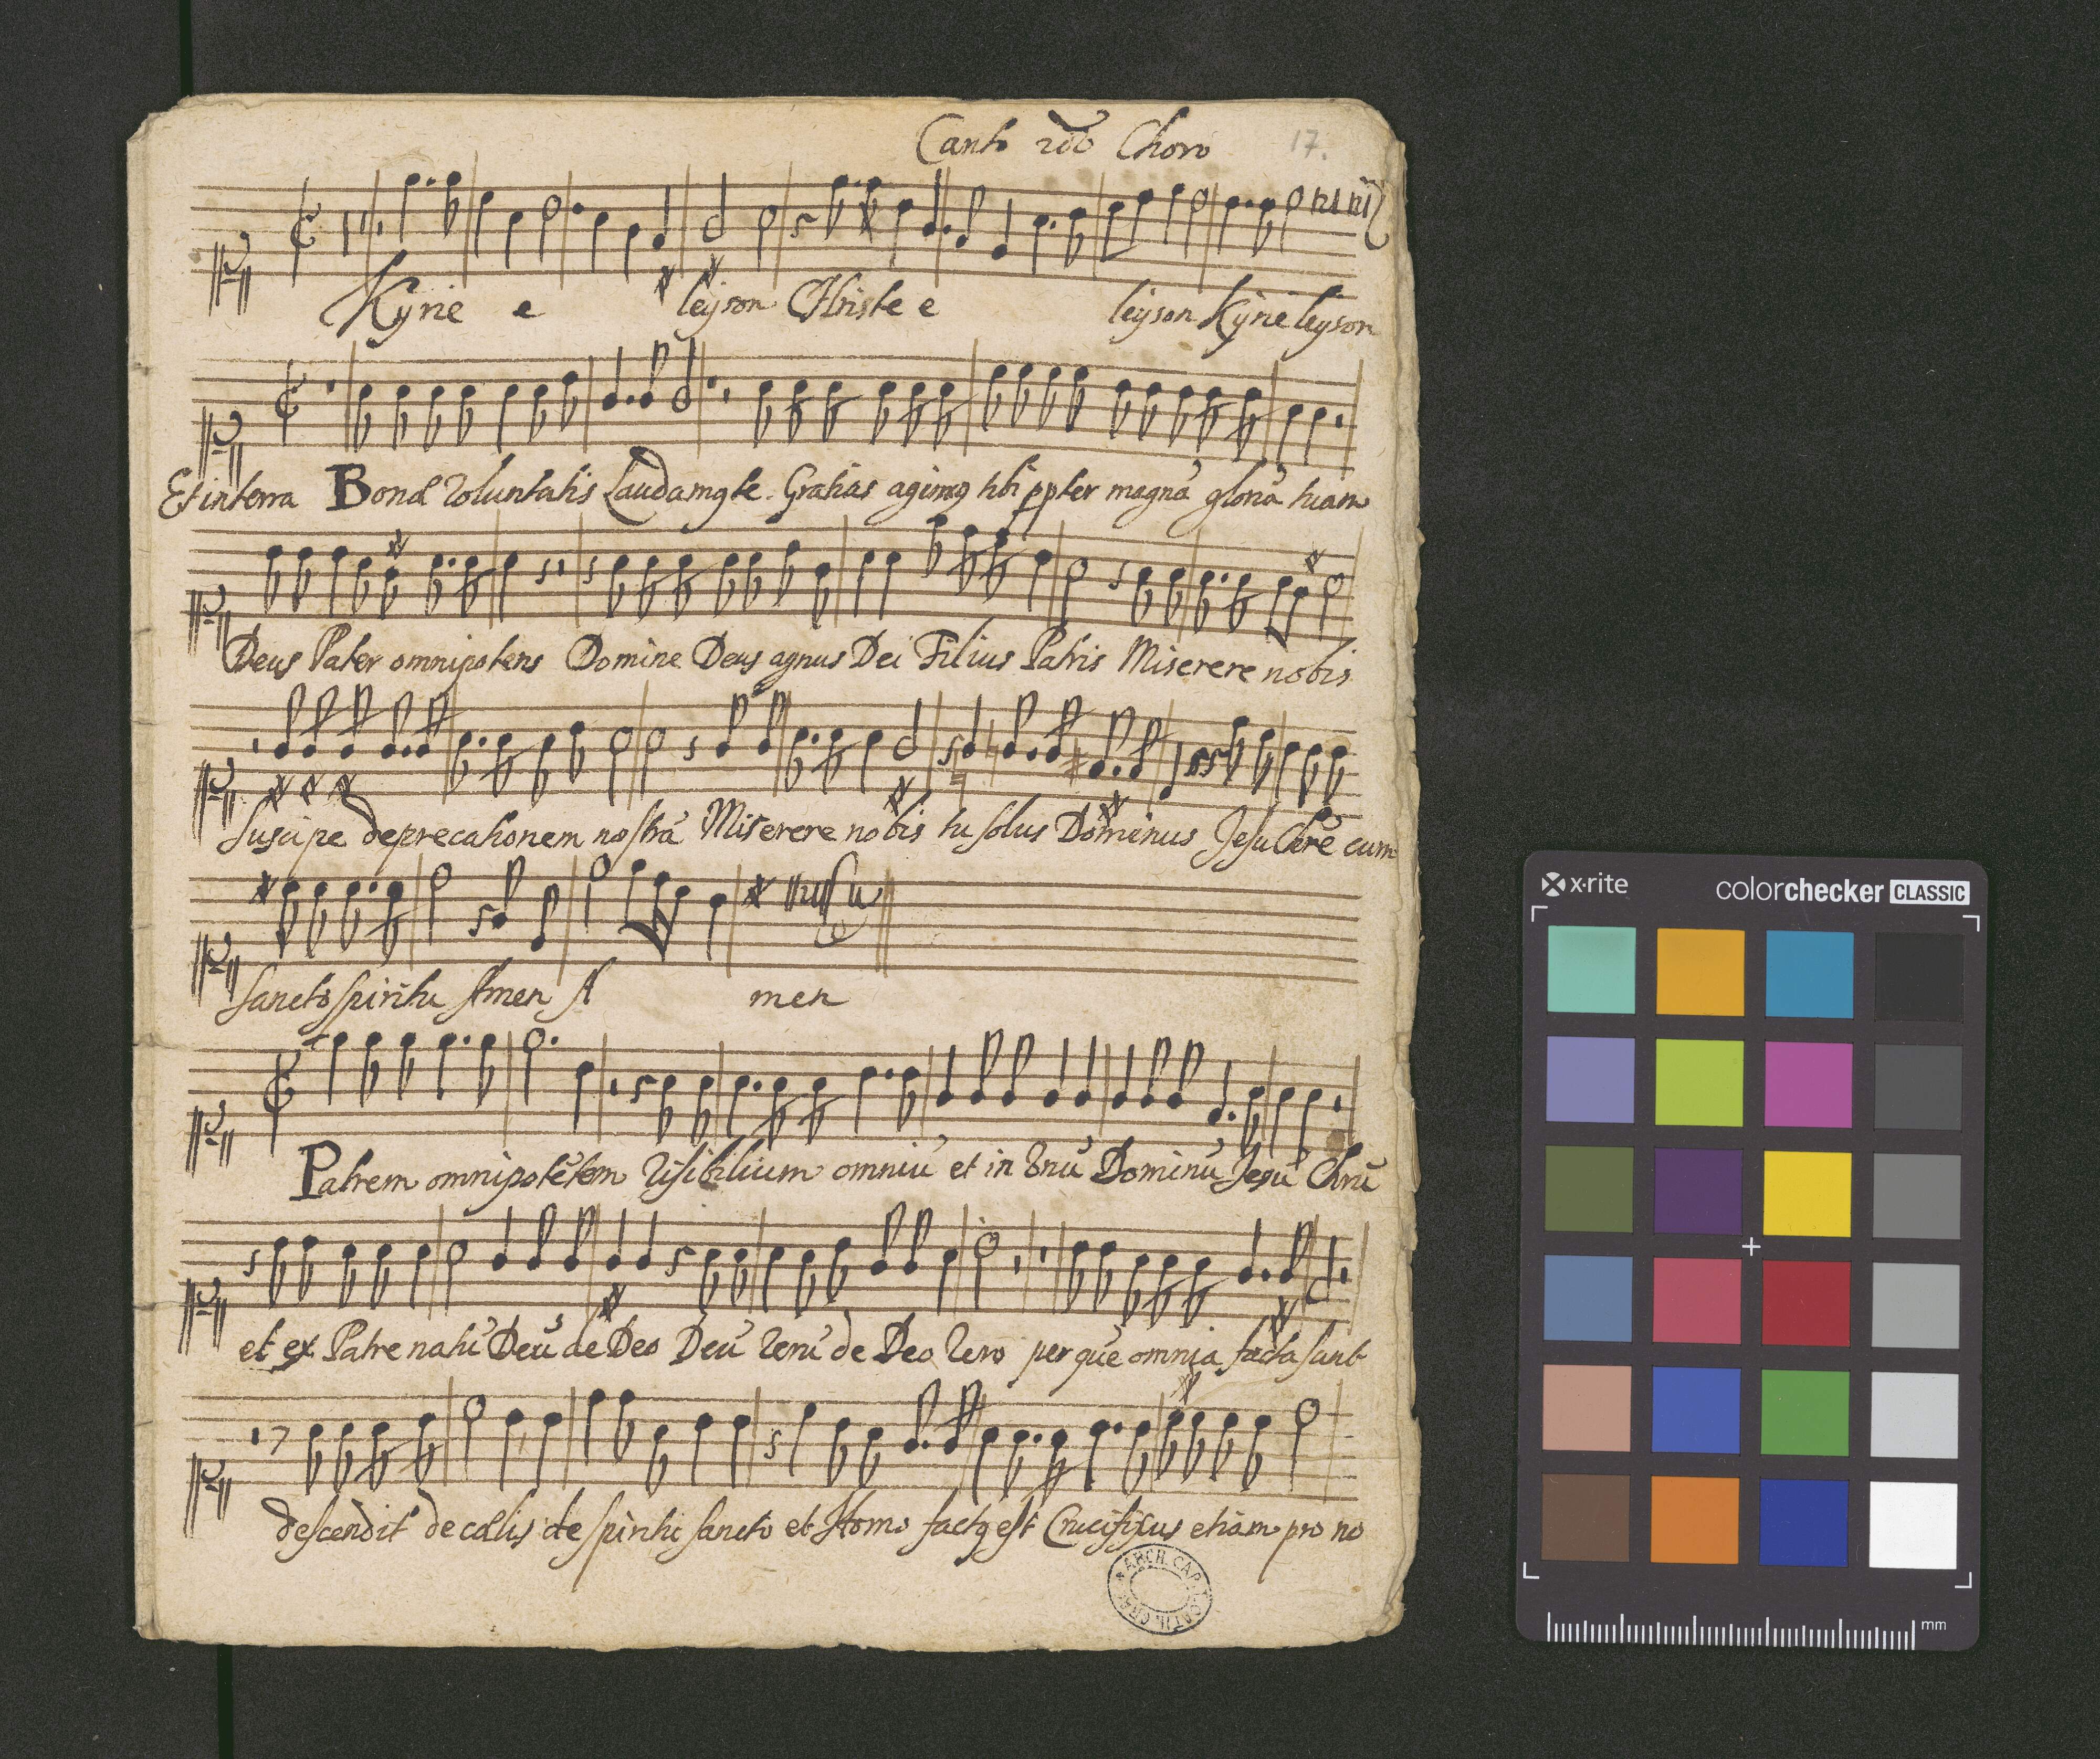 Canto 2do Choro 17.
Kyrie e leyson Christe e leyson Kyrie leyson
Et in terra Bonæ Voluntatis Laudamq te Gratias agimq tibi ppter magnā gloriā tuam
Deus Pater omnipotens Domine Deus agnus Dei Filius Patris Miserere nobis
Suscipe deprecationem nostrā Miserere nobis tu solus Dominus Jesu Chre cum
sancto spiritu Amen A men
Patrem omnipotētem Visibilium omniū et in Vnū Dominū Jesū Chrū
et ex Patre natū Deū de Deo Deū Verū de Deo Vero per quē omnia facta sunt
descendit de cælis de spiritu sancto et Homo factq est Crucifixus etiam pro no
ARCH. CAP. CATH. CRAC.
x·rite
colorchecker CLASSIC
mm